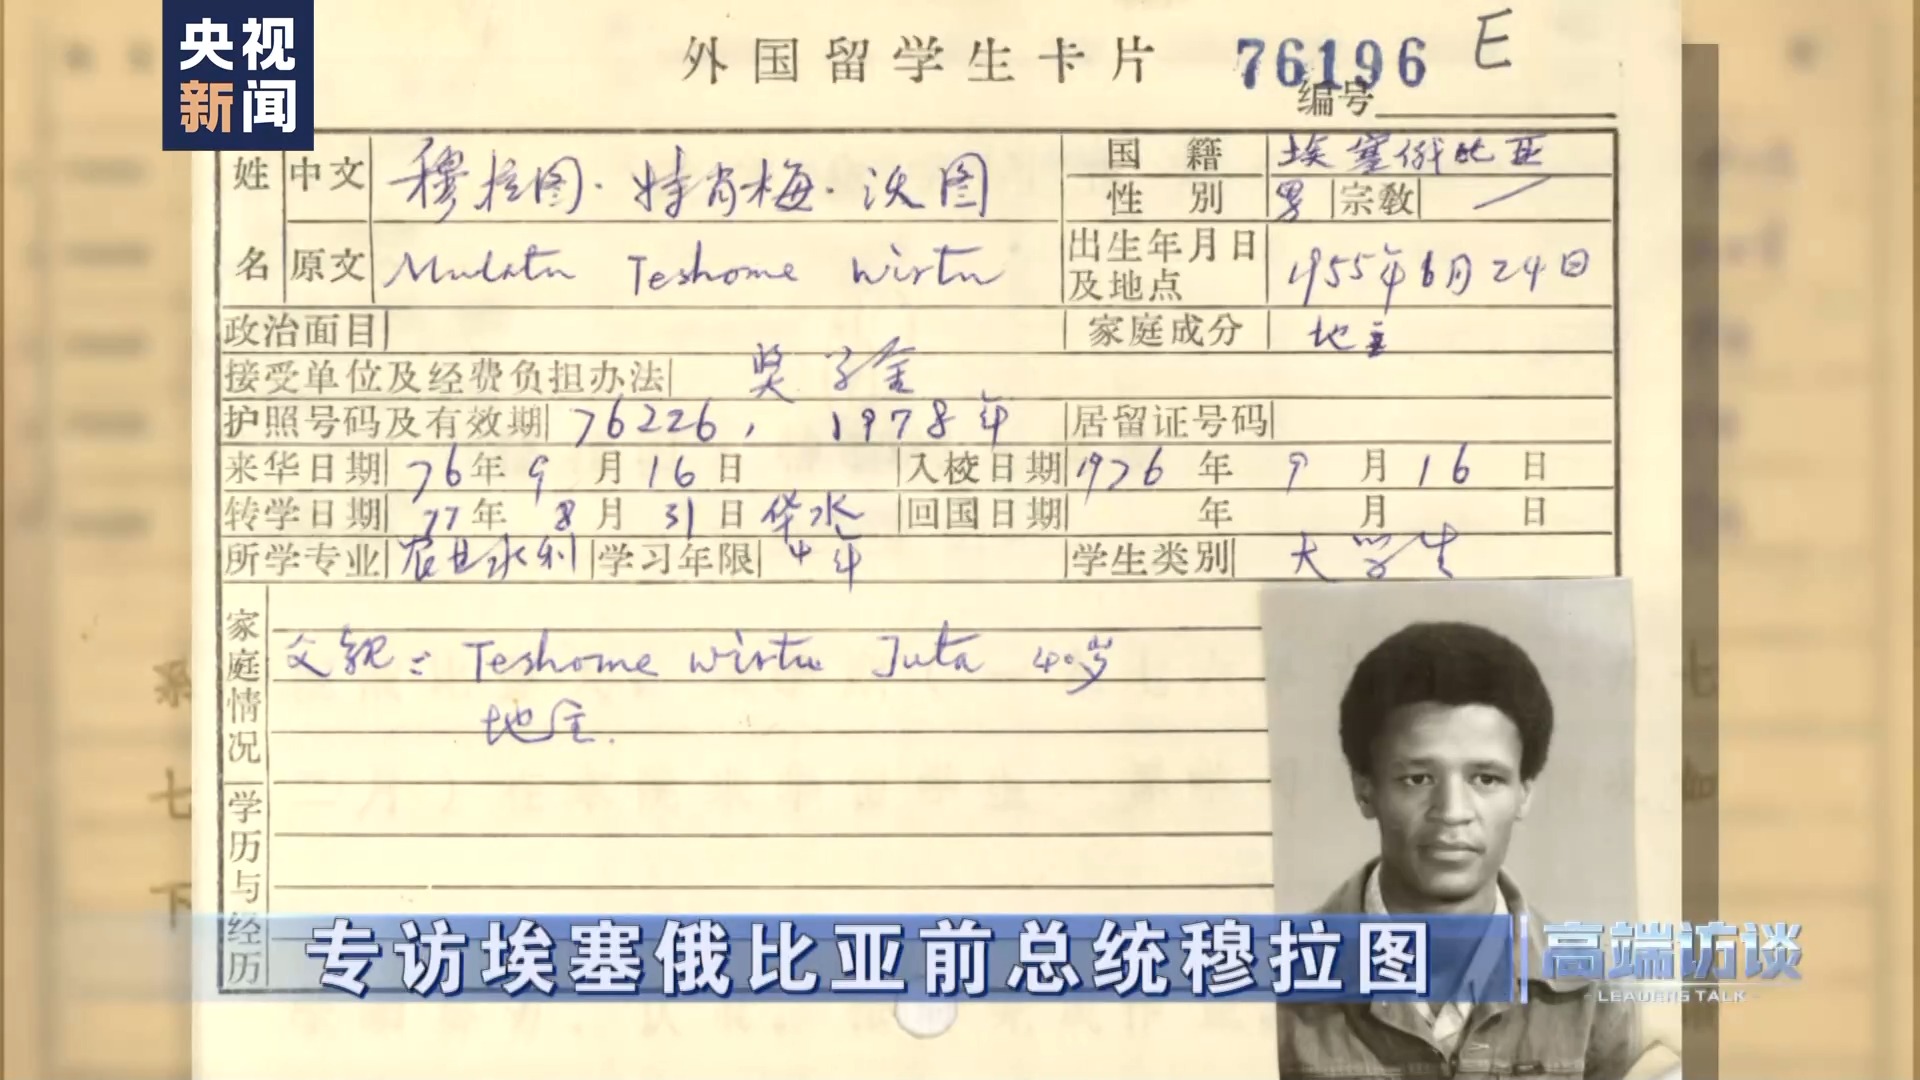 央视
新闻
外国留学生卡片 76196 E
编号
姓名 中文 穆拉图·特肖梅·沃图 国籍 埃塞俄比亚
性别 男 宗教
原文 Mulatu Teshome Wirtu 出生年月日及地点 1955年6月24日
政治面目 家庭成分 地主
接受单位及经费负担办法 奖学金
护照号码及有效期 76226, 1978年 居留证号码
来华日期 76年9月16日 入校日期 1976年9月16日
转学日期 77年8月31日 华水 回国日期 年 月 日
所学专业 农田水利 学习年限 4年 学生类别 大学生
家庭情况
父親: Teshome Wirtu Juta 40岁
地主.
学历与经历
专访埃塞俄比亚前总统穆拉图
高端访谈
LEADERS TALK